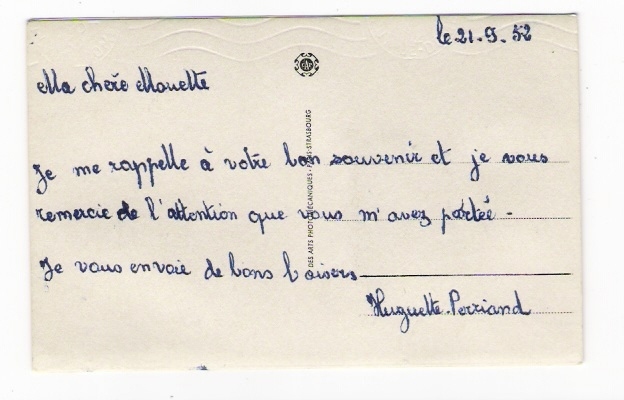 le 21.9.52
Ma chère Mouette
Je me rappelle à votre bon souvenir et je vous
remercie de l'attention que vous m'avez portée.
Je vous envoie de bons baisers
Huguette Perriand
DES ARTS PHOTOMÉCANIQUES - PARIS-STRASBOURG